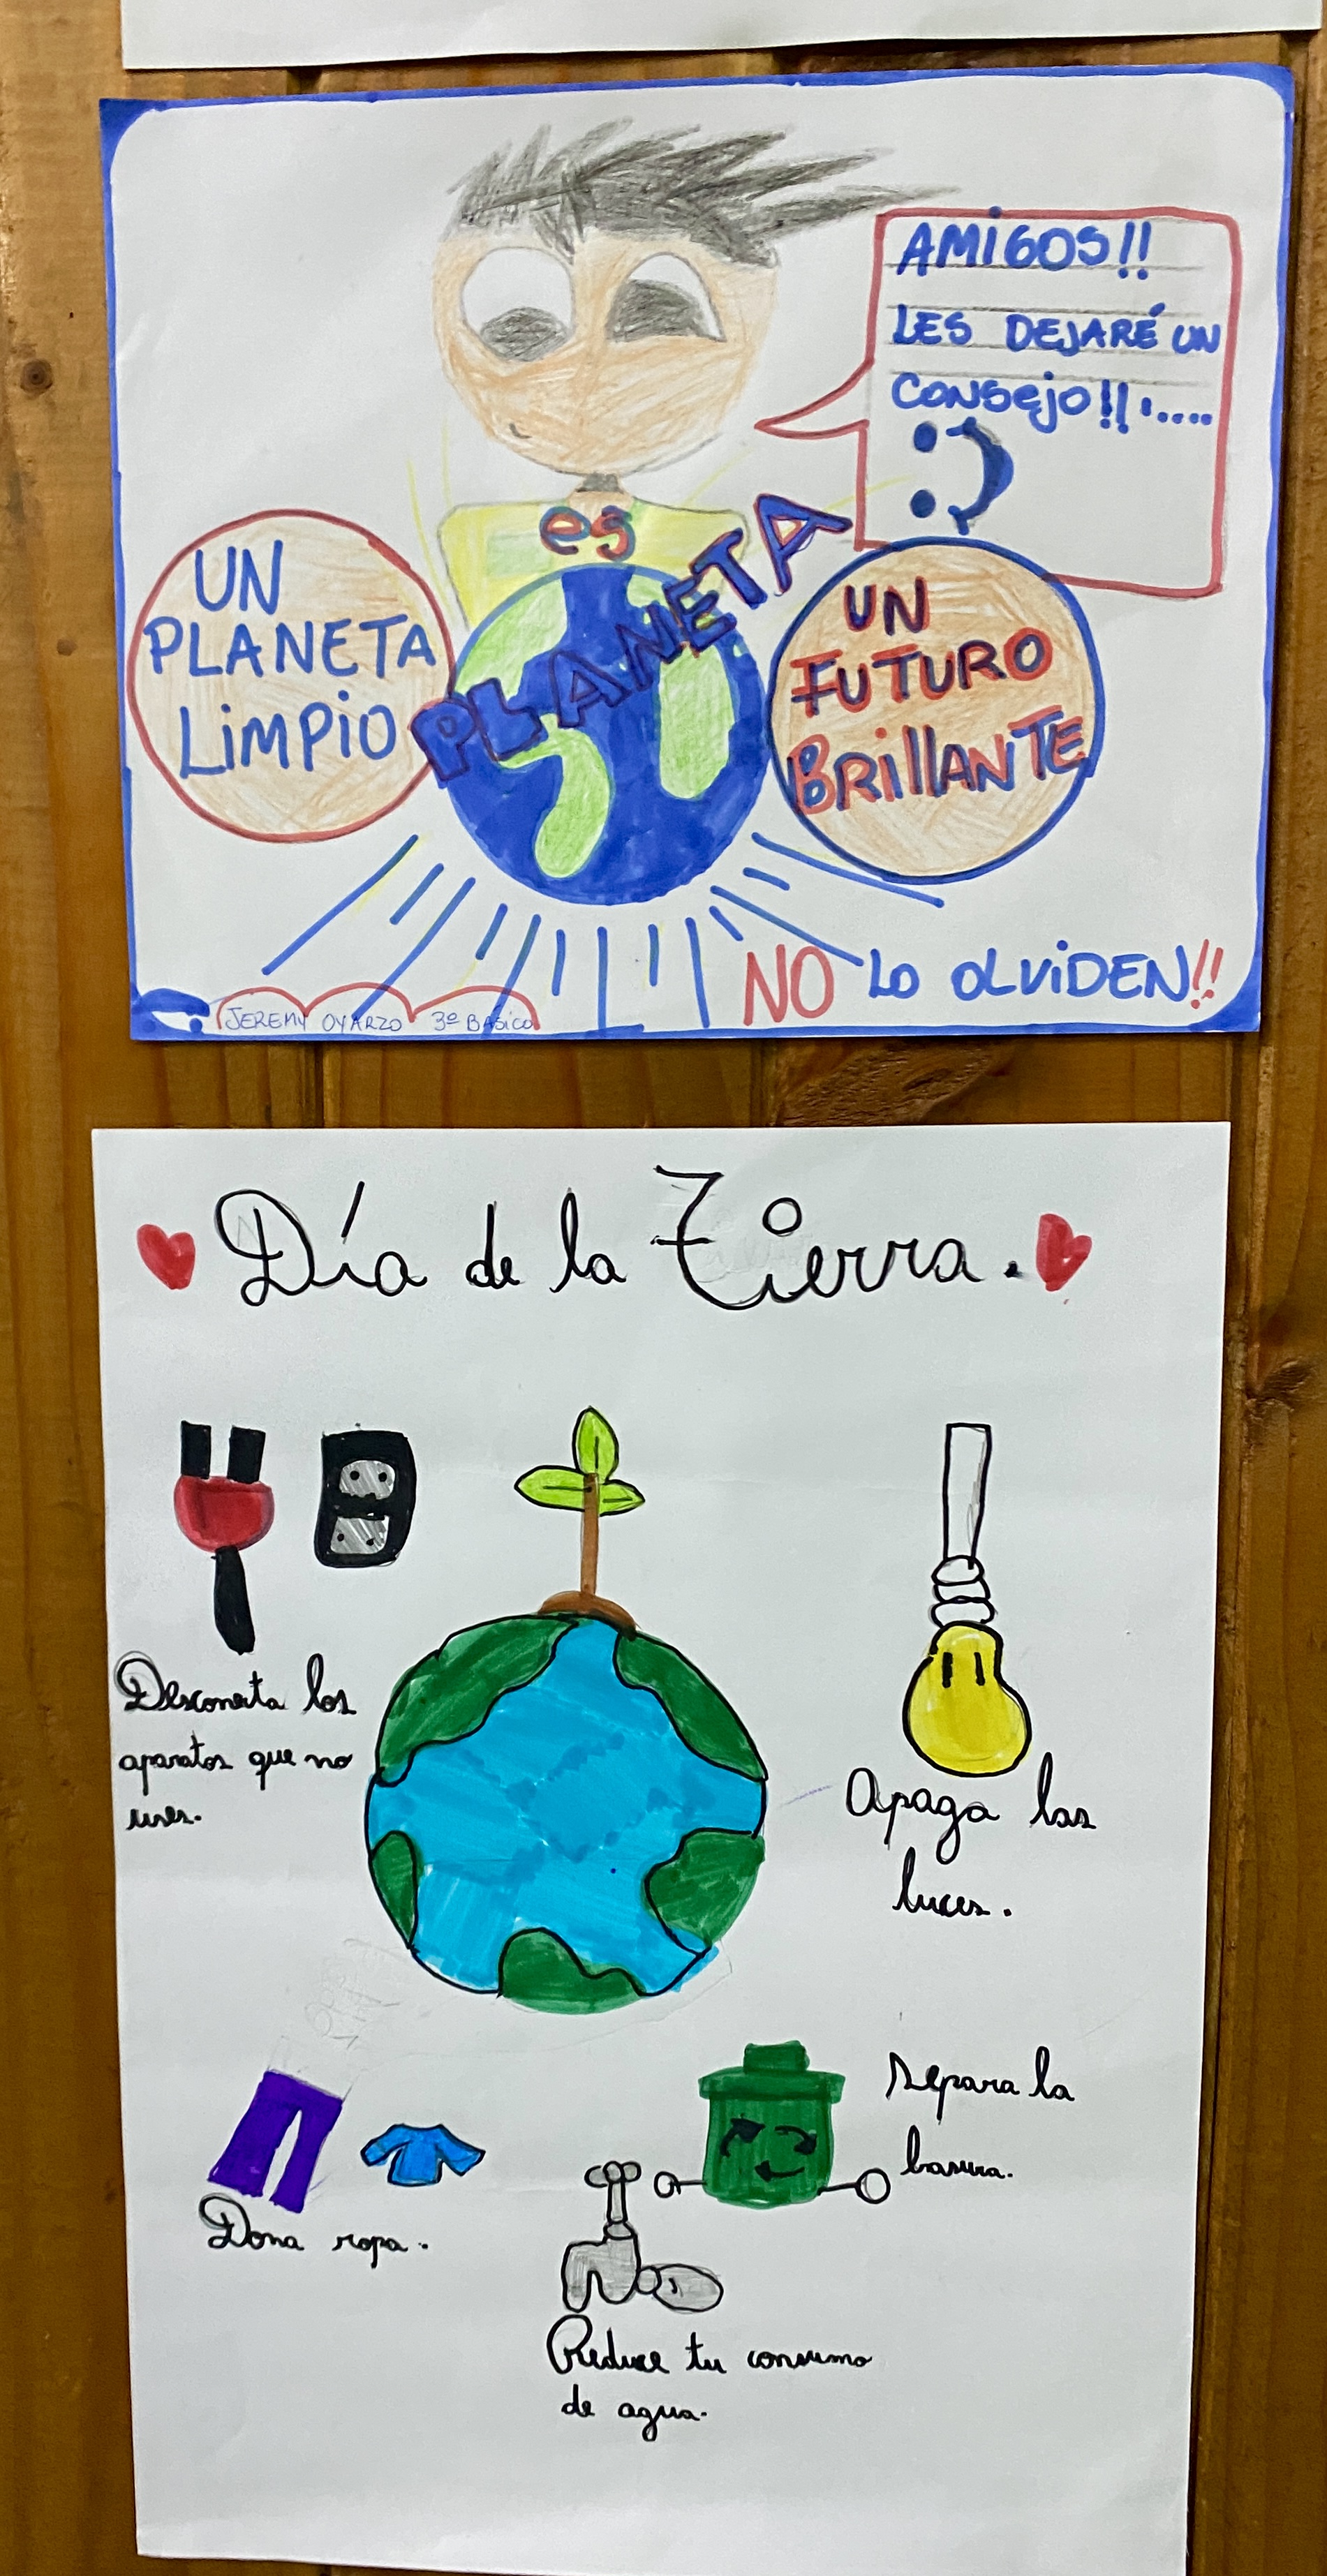 AMIGOS!!
LES DEJARÉ UN
CONSEJO!! :....
:)
UN
PLANETA
LIMPIO
es
PLANETA
UN
FUTURO
BRILLANTE
NO LO OLVIDEN!!
JEREMY OYARZO 3º BASICO
Día de la Tierra.
Desconecta los
aparatos que no
uses.
Apaga las
luces.
Separa la
basura.
Dona ropa.
Reduce tu consumo
de agua.